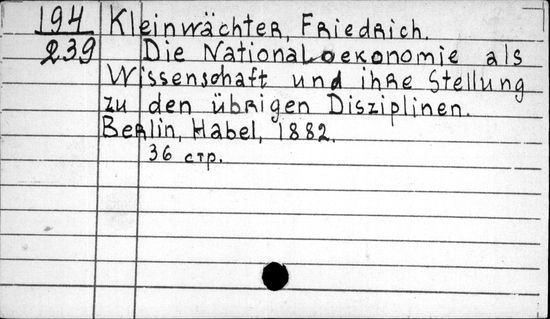 194 Kleinwächter, Friedrich.
239 Die Nationaloekonomie als
Wissenschaft und ihre Stellung
zu den übrigen Disziplinen.
Berlin, Habel, 1882.
36 стр.